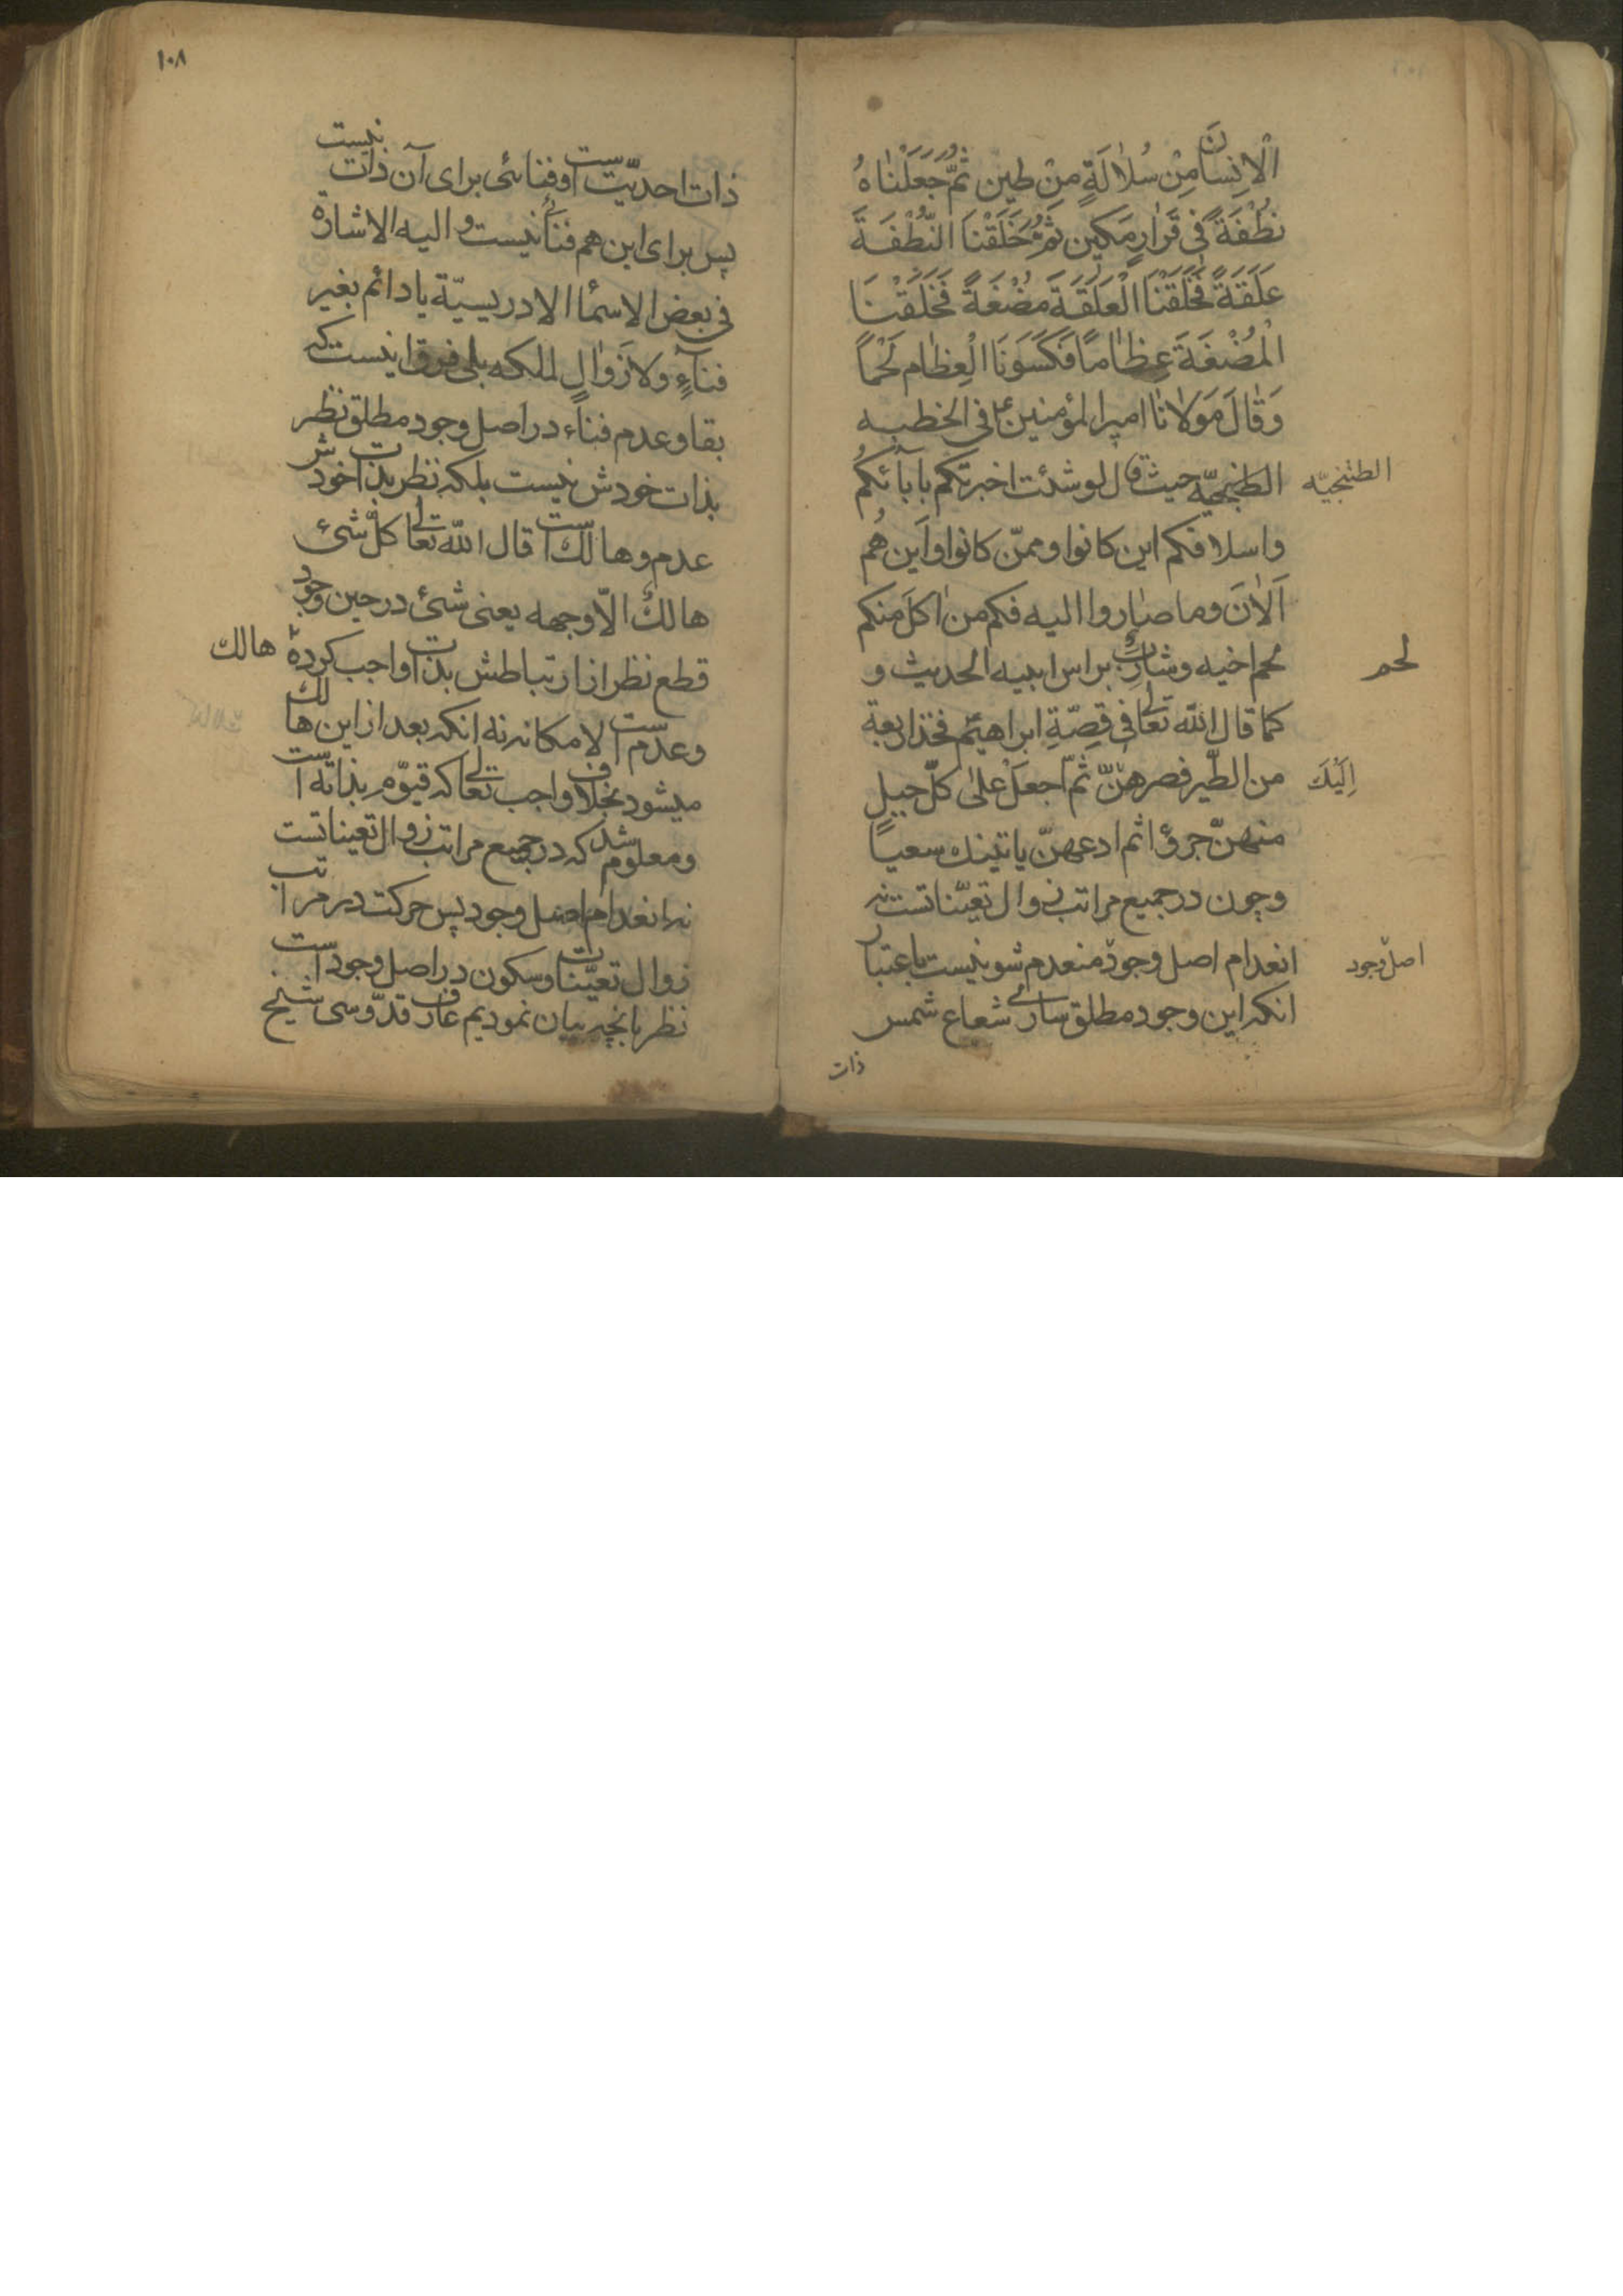 الْاِنسانَ مِنْ سُلٰالَةٍ مِنْ طين ثُمَّ جَعَلْنٰاهُ
نُطْفَةً فى قَرٰارٍ مَكين ثُمَّ خَلَقْنَا النُّطْفَةَ
عَلَقَةً فَخَلَقْنَا الْعَلَقَةَ مُضْغَةً فَخَلَقْنَا
الْمُضْغَةَ عِظٰامًا فَكَسَوْنَا الْعِظٰام لَحْمًا
وَقٰالَ مَوْلانٰا امير المؤمنين ع فى الخطبه
الطنجيّه حيث قال لو شئت اخبرتكم بابآئكُم
الطتنجيّه
واسلافكم اين كانوا وممّن كانوا واَين هُم
اَلْاٰنَ وما صٰاروا اليه فكم من اٰكل منكم
لحم اخيه وشارب براس ابيه الحديث و
لحم
كما قال الله تعالى فى قِصّةِ ابراهيم فخذ اربعة
من الطّير فصرهنّ ثمّ اجعَلْ علىٰ كلّ جبلٍ
اِلَيْكَ
منهنّ جزؤا ثم ادعهنّ ياتينك سعياً
وچون در جميع مراتب زوال تعيّناتست نه
انعدام اصل وجود منعدم شو نيست باعتبار
اصل وجود
انكه اين وجود مطلق سارى شعاع شمس
ذات
١٠٨
ذات احديّت است او فنائى براى آن ذات نيست
پس براى اين هم فنآء نيست و اليه الاشارة
فى بعض الاسمآء الادريسيّة يا دائم بغير
فنآءٍ ولا زَوٰالٍ لملكه بلى فرق اينست كه
بقا وعدم فناء در اصل وجود مطلق نظر
بذات خودش نيست بلكه نظر بذات خودش
عدم وهالك است قال الله تعالى كلّ شئ
هالكٌ الاّ وجهه يعنى شئ در حين وجود
قطع نظر از ارتباطش بذات واجب كرده هالك
وعدم است لامكانه نه انكه بعد از اين هالك
ميشود بخلاف واجب تعالى كه قيوّم بذاته است
ومعلوم شد كه در جميع مراتب زوال تعيناتست
نه انعدام اصل وجود پس حركت در مراتب
زوال تعيّنات وسكون در اصل وجود است
نظر بانچه بيان نموديم عارف قدّوسى شيخ